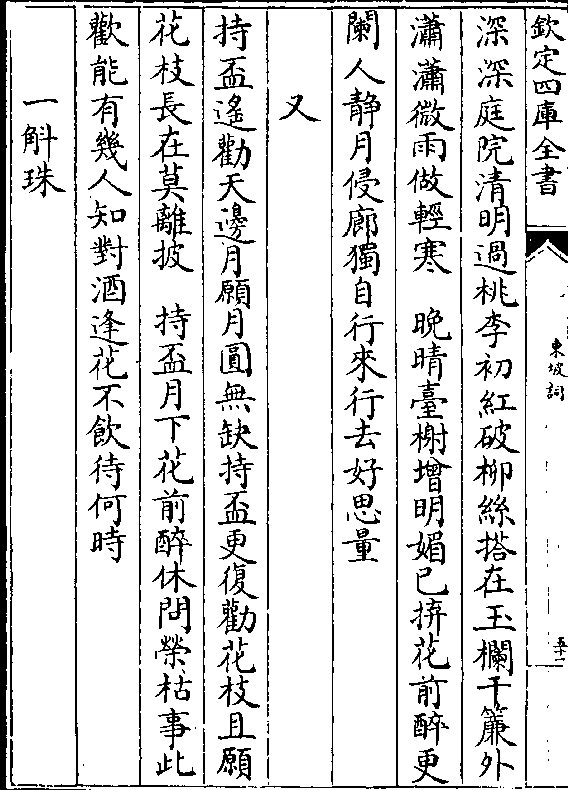 欽定四庫全書
東坡詞
五十二
深深庭院清明過桃李初紅破柳絲搭在玉欄干簾外
瀟瀟微雨做輕寒　晚晴臺榭增明媚已拚花前醉更
闌人静月侵廊獨自行來行去好思量
又
持盃遙勸天邊月願月圓無缺持盃更復勸花枝且願
花枝長在莫離披　持盃月下花前醉休問榮枯事此
歡能有幾人知對酒逢花不飲待何時
一斛珠